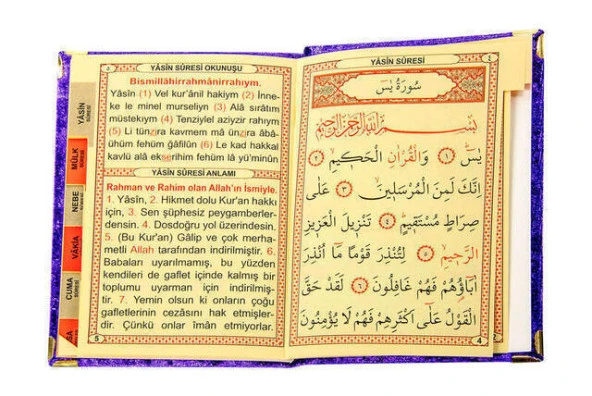 YÂSİN SÛRESİ OKUNUŞU
Bismillâhirrahmânirrahıym.
Yâsîn (1) Vel kur'ânil hakiym (2) İnne-
ke le minel murseliyn (3) Alâ sırâtım
müstekıym (4) Tenziylel aziyzir rahiym
(5) Li tünzira kavmem mâ ünzira âbâ-
ühüm fehüm gâfilûn (6) Le kad hakkal
kavlü alâ ekserihim fehüm lâ yü'minûn
YÂSİN SÛRESİ ANLAMI
Rahman ve Rahim olan Allah'ın İsmiyle.
1. Yâsîn, 2. Hikmet dolu Kur'an hakkı
için, 3. Sen şüphesiz peygamberler-
densin. 4. Dosdoğru yol üzerindesin.
5. (Bu Kur'an) Gâlip ve çok merha-
metli Allah tarafından indirilmiştir. 6.
Babaları uyarılmamış, bu yüzden
kendileri de gaflet içinde kalmış bir
toplumu uyarman için indirilmiş-
tir. 7. Yemin olsun ki onların çoğu
gafletlerinin cezâsını hak etmişler-
dir. Çünkü onlar îmân etmiyorlar.
5
YÂSİN
SÛRESİ
MÜLK
SÛRESİ
NEBE
SÛRESİ
VÂKIA
SÛRESİ
CUMA
SÛRESİ
YÂSİN SÛRESİ
٤
سُورَةُ يٰسٓ
بِسْمِ اللّٰهِ الرَّحْمٰنِ الرَّحِيمِ
يٰسٓ ١ وَالْقُرْاٰنِ الْحَكِيمِ ٢
اِنَّكَ لَمِنَ الْمُرْسَلِينَ ٣ عَلٰى
صِرَاطٍ مُسْتَقِيمٍ ٤ تَنْزِيلَ الْعَزِيزِ
الرَّحِيمِ ٥ لِتُنْذِرَ قَوْمًا مَٓا اُنْذِرَ
اٰبَٓاؤُ۬هُمْ فَهُمْ غَافِلُونَ ٦ لَقَدْ حَقَّ
الْقَوْلُ عَلٰٓى اَكْثَرِهِمْ فَهُمْ لَا يُؤْمِنُونَ
4